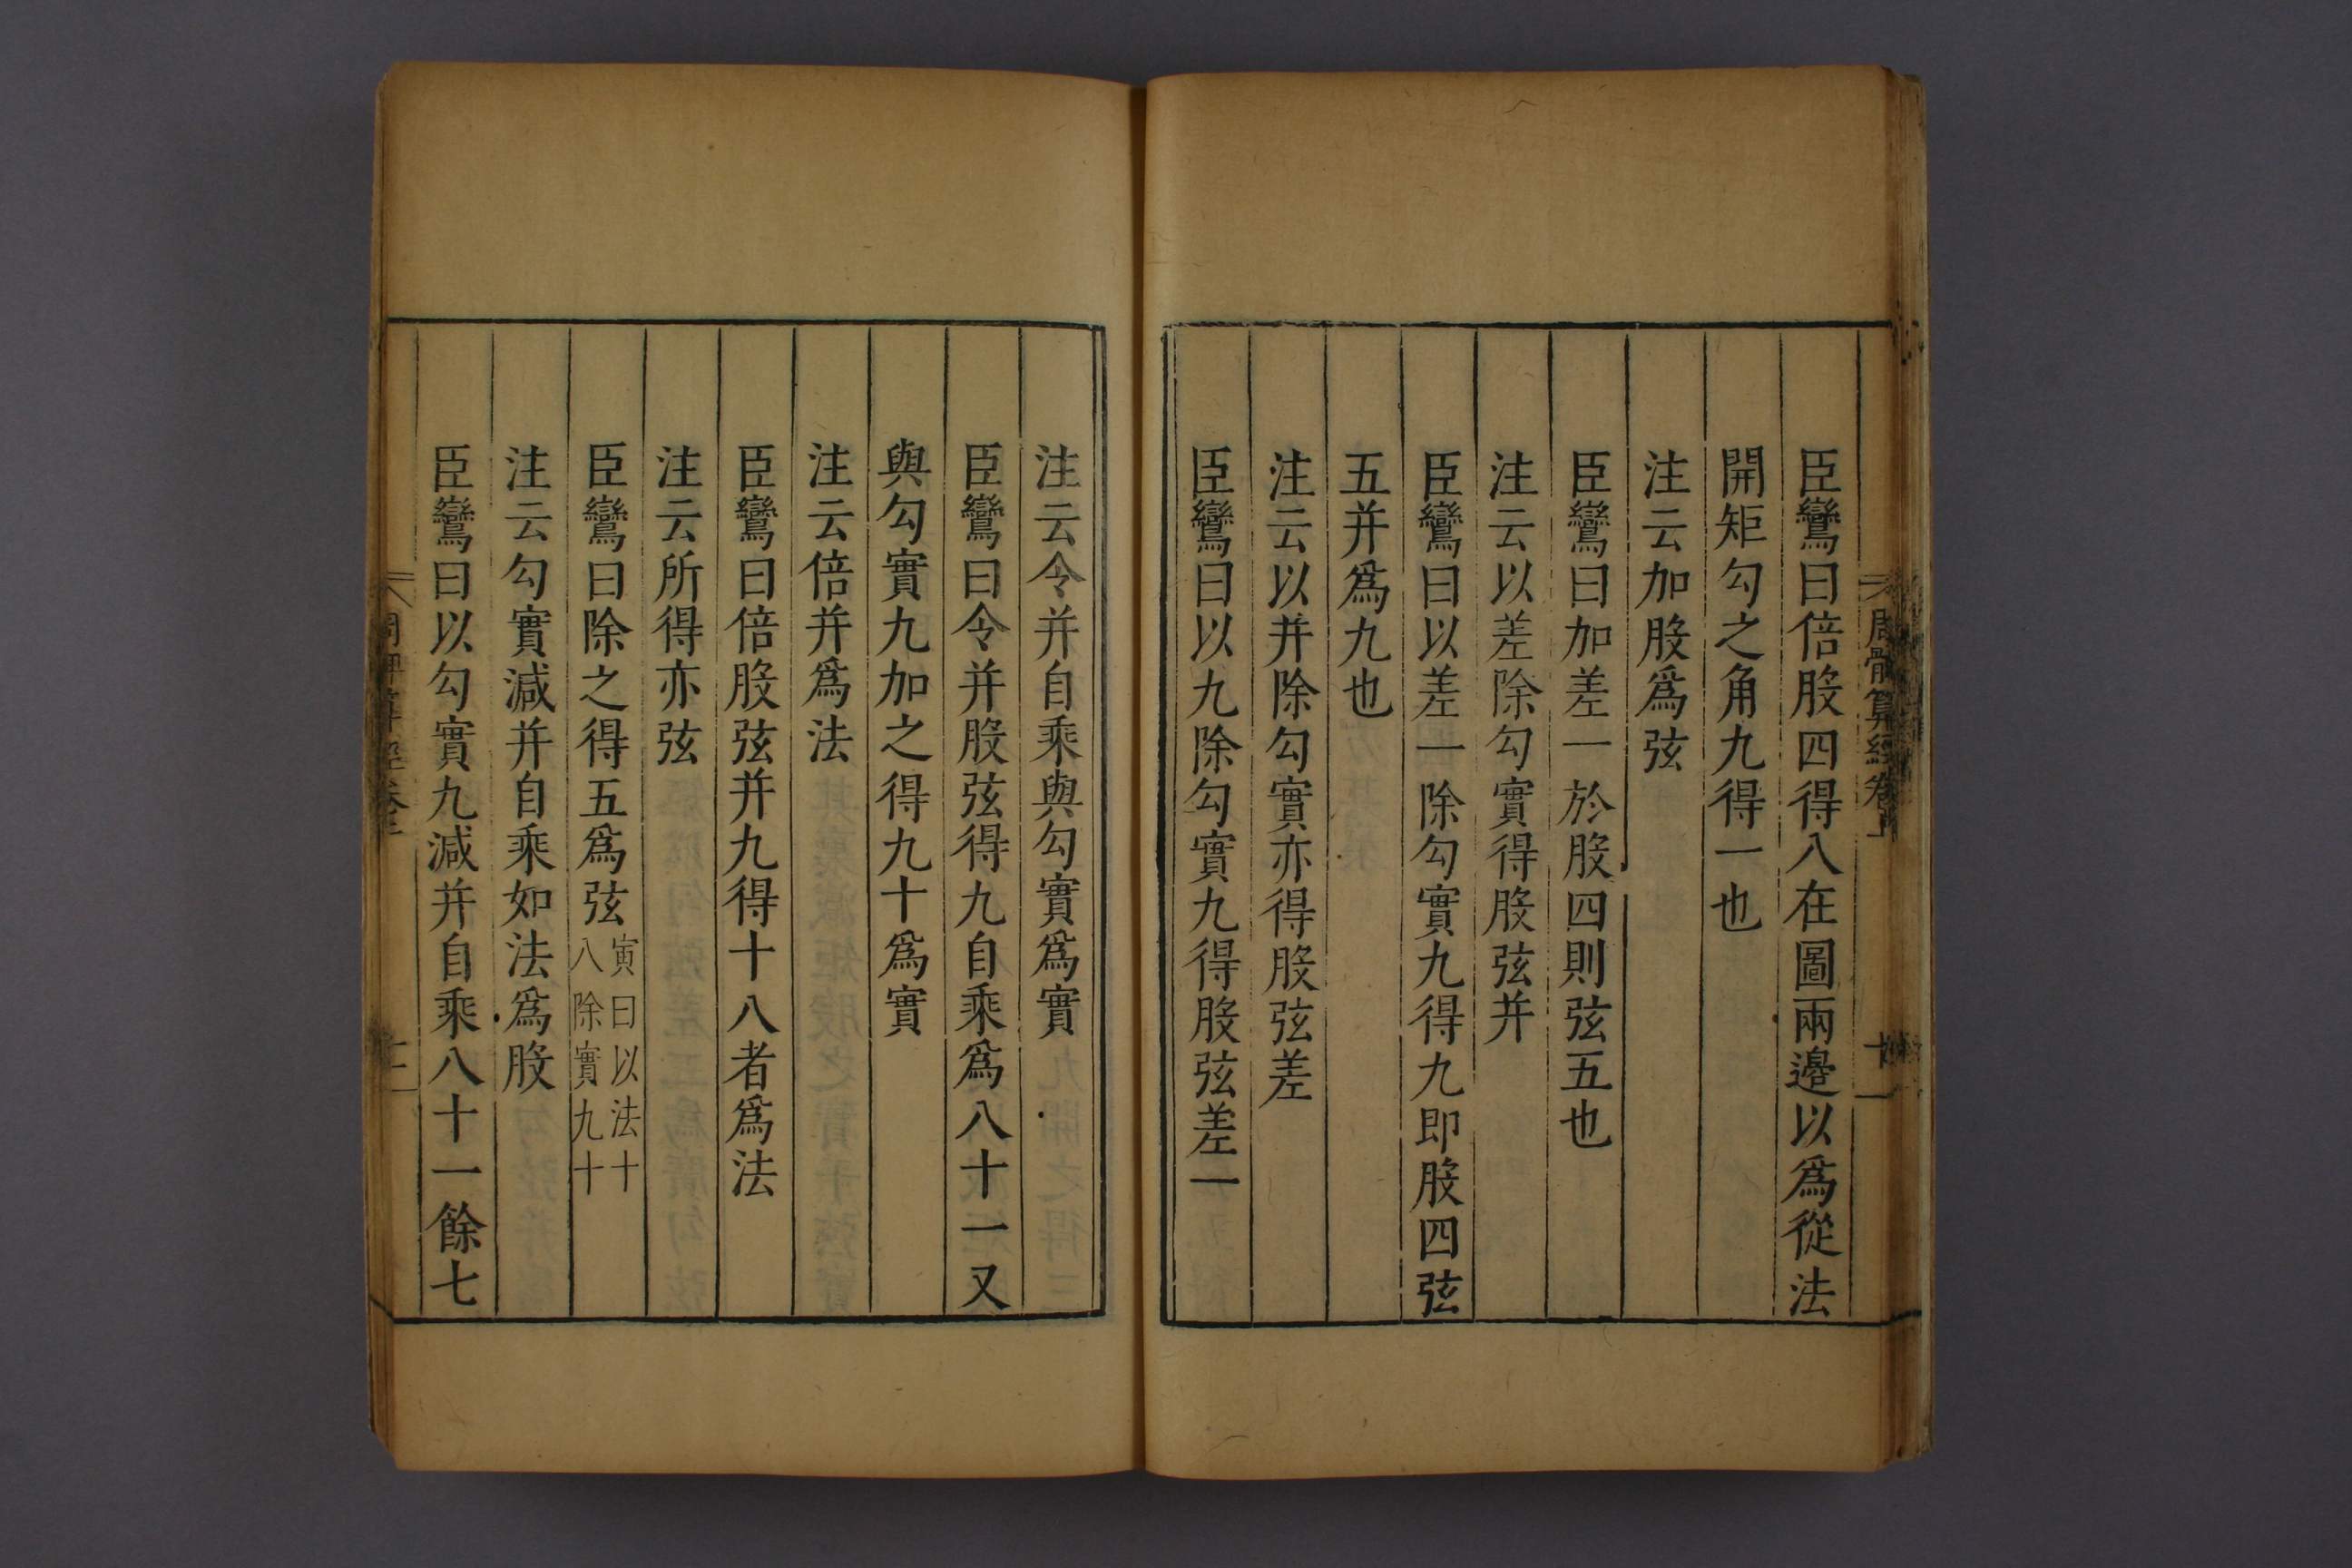 周髀算經卷上
十一
臣鸞曰倍股四得八在圖兩邊以為從法
開矩勾之角九得一也
注云加股為弦
臣鸞曰加差一於股四則弦五也
注云以差除勾實得股弦并
臣鸞曰以差一除勾實九得九即股四弦
五并為九也
注云以并除勾實亦得股弦差
臣鸞曰以九除勾實九得股弦差一
注云令并自乘與勾實為實
臣鸞曰令并股弦得九自乘為八十一又
與勾實九加之得九十為實
注云倍并為法
臣鸞曰倍股弦并九得十八者為法
注云所得亦弦
臣鸞曰除之得五為弦
寅曰以法十
八除實九十
注云勾實減并自乘如法為股
臣鸞曰以勾實九減并自乘八十一餘七